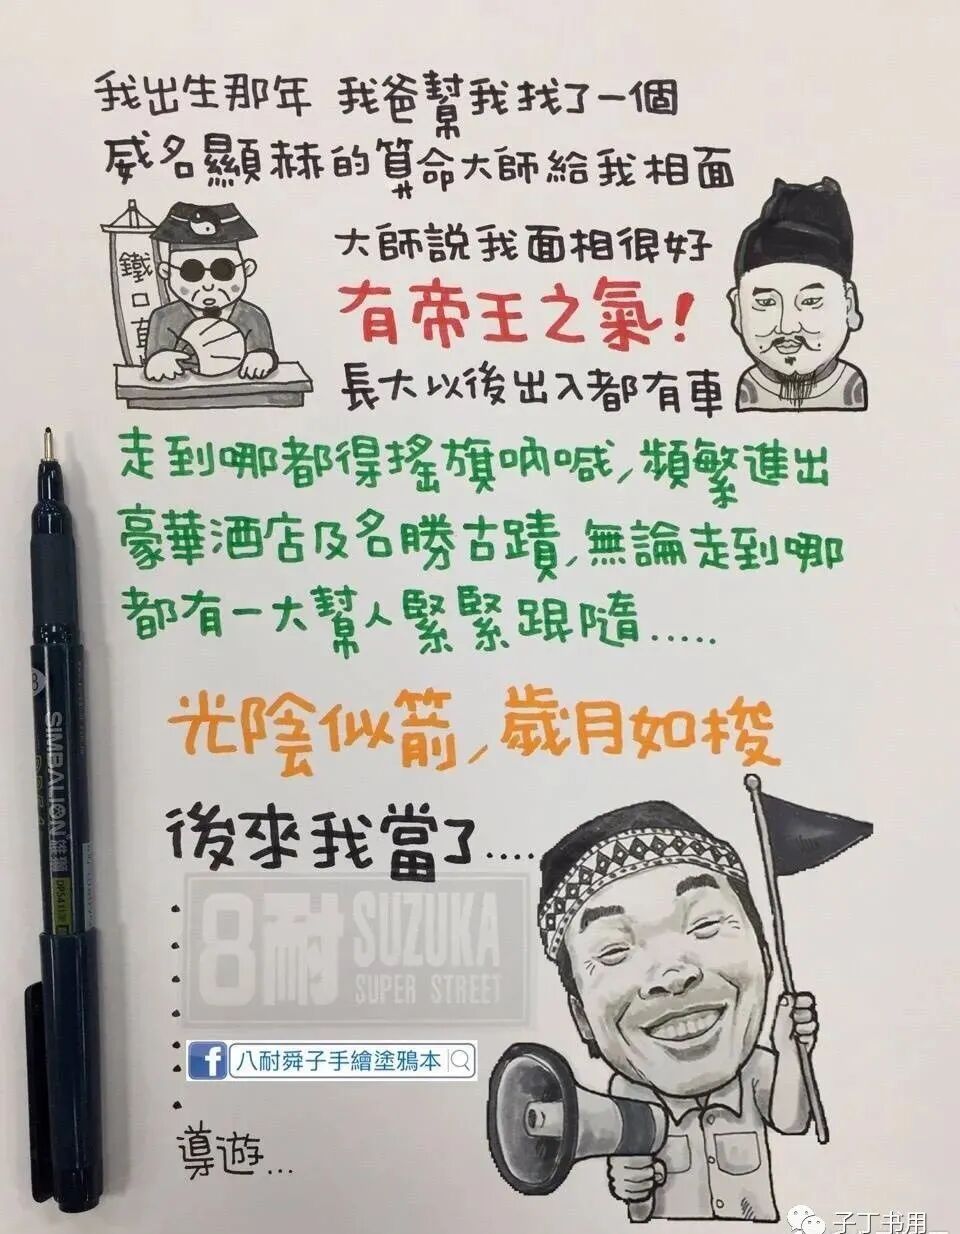 我出生那年 我爸幫我找了一個
威名顯赫的算命大師給我相面
鐵口直
大師說我面相很好
有帝王之氣!
長大以後出入都有車
走到哪都得搖旗吶喊,頻繁進出
豪華酒店及名勝古蹟,無論走到哪
都有一大幫人緊緊跟隨.....
光陰似箭,歲月如梭
後來我當了.....
8耐 SUZUKA
SUPER STREET
八耐舜子手繪塗鴉本
導遊...
SIMBALION 雄獅
子丁书用